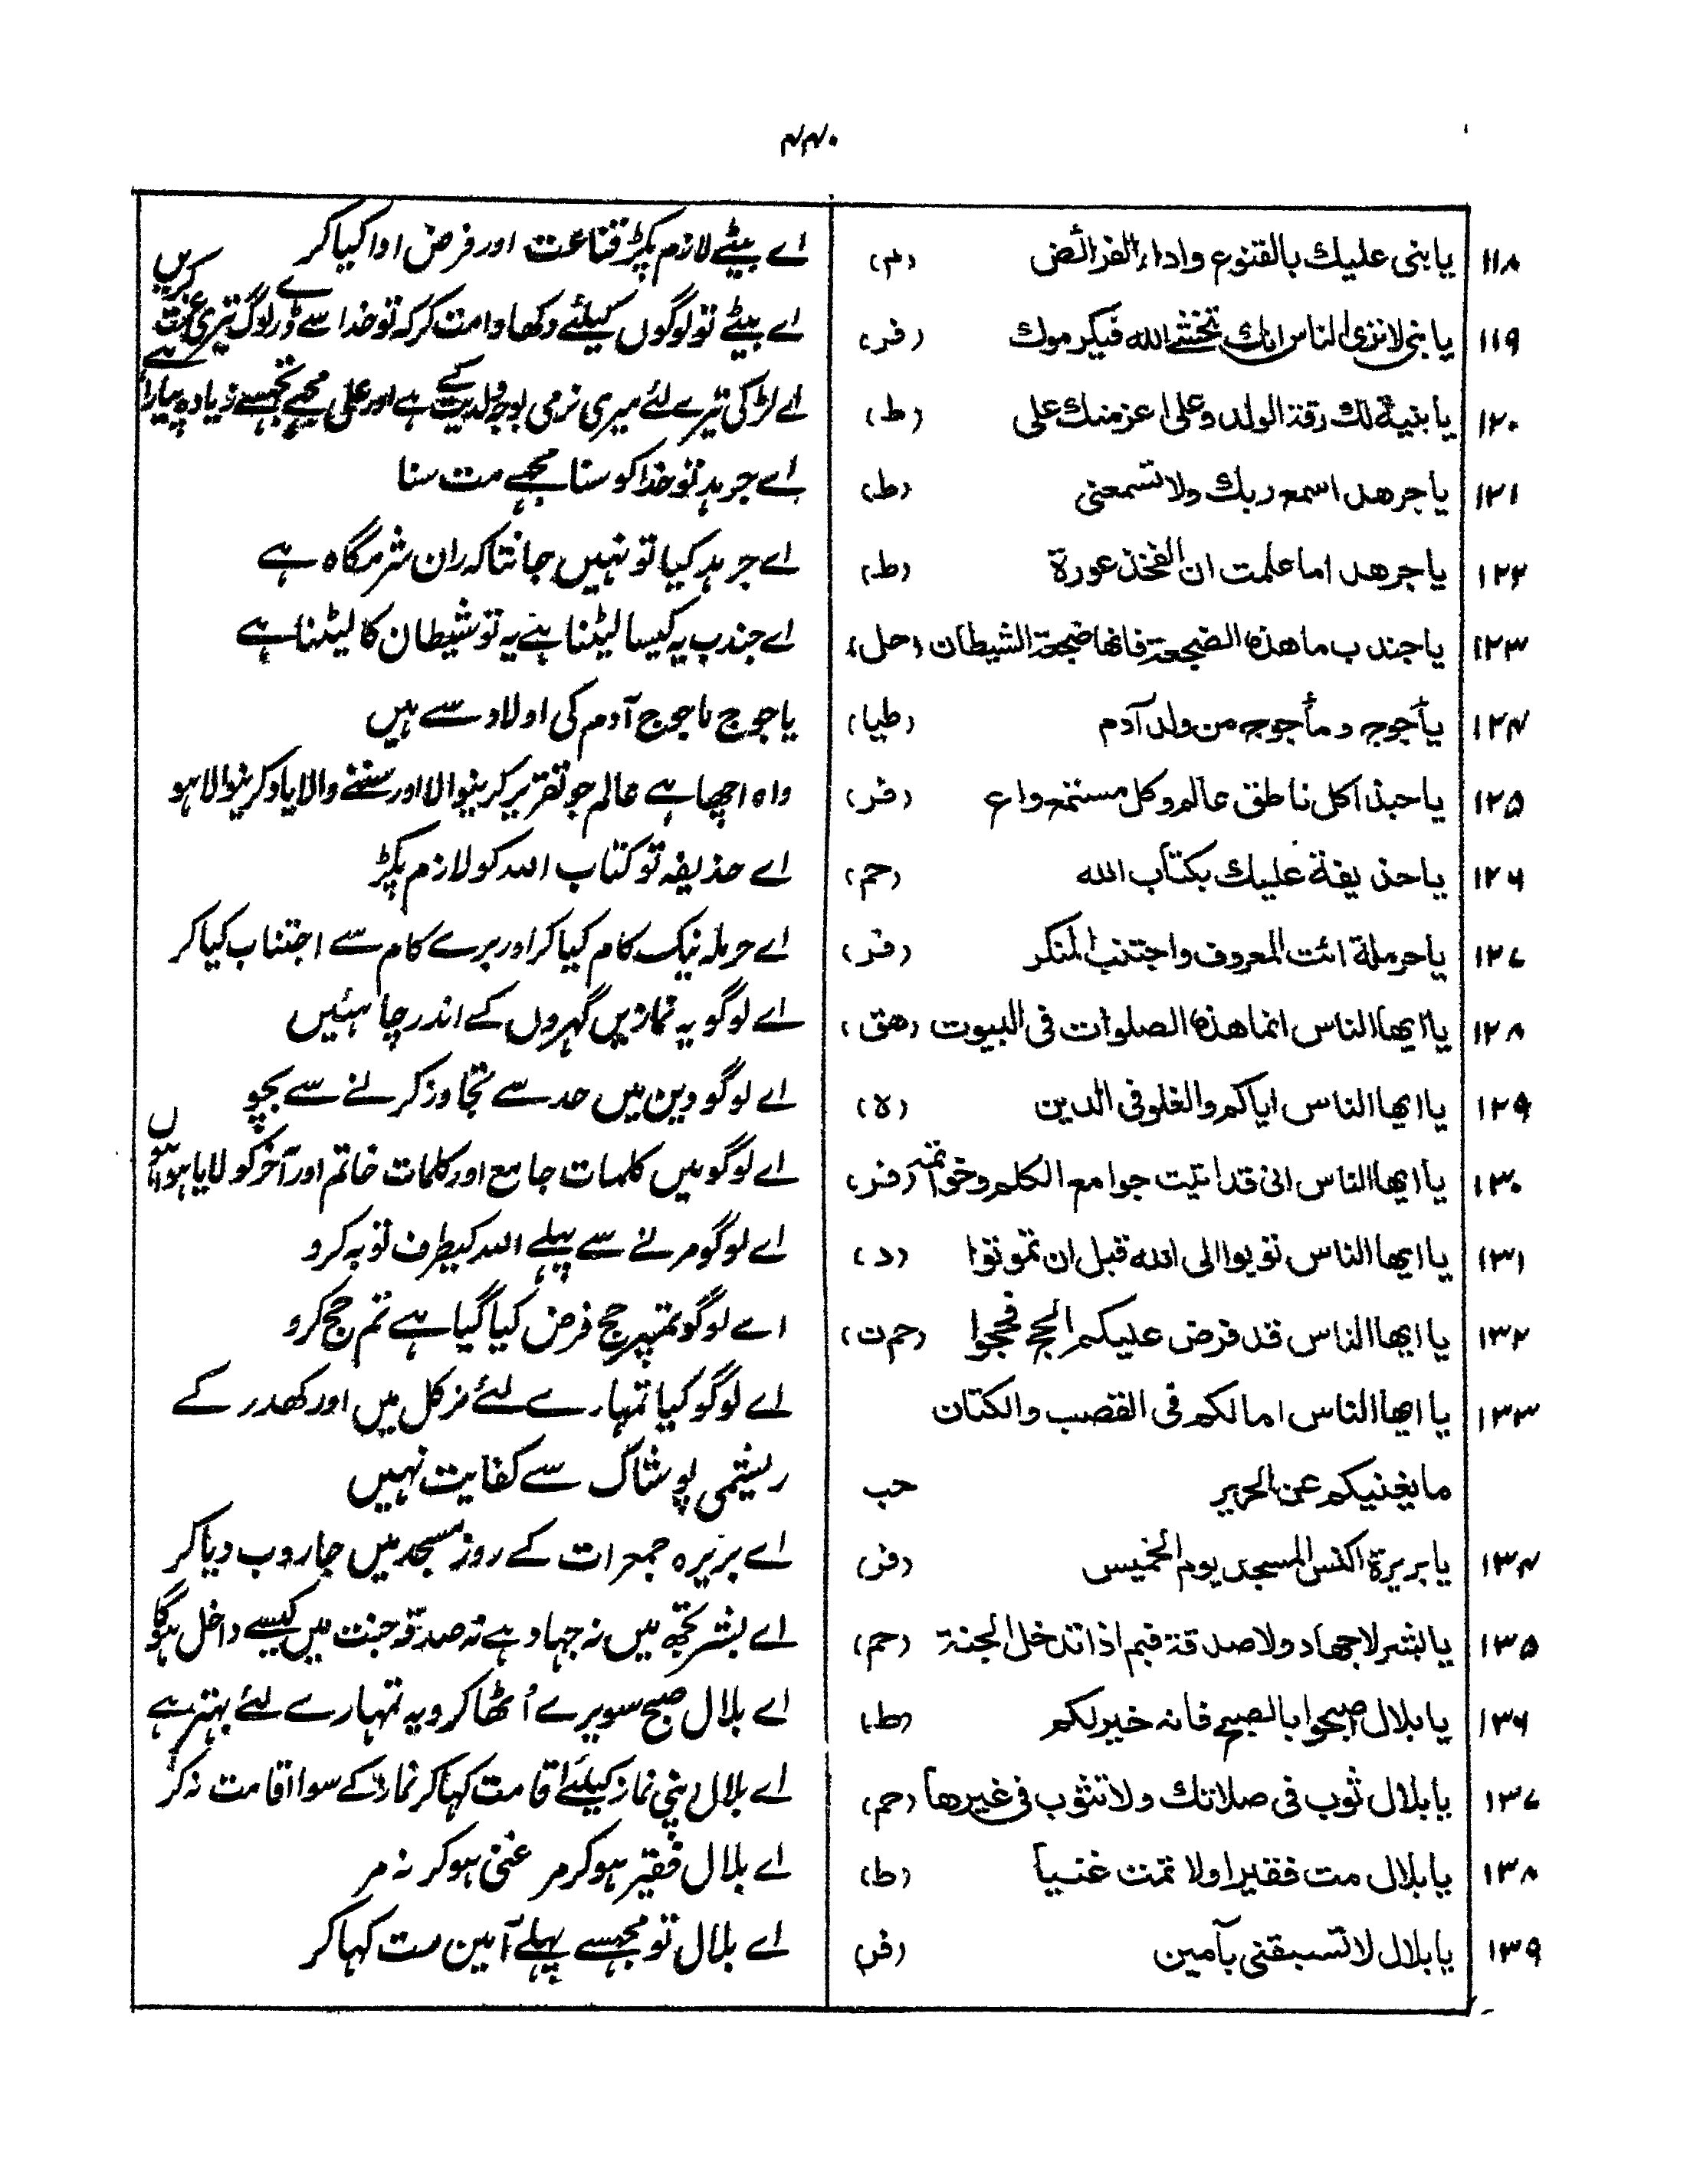 ۴۴۰
۱۱۸ یا بنی علیك بالقنوع واداء الفرائض (م) اے بیٹے لازم پکڑ قناعت اور فرض ادا کیا کر
۱۱۹ یا بنی لا تری الناس انك تخشی الله فیکرموك (فر) اے بیٹے تو لوگوں کیلئے دکھاوا مت کر کہ تو خدا سے ڈرے لوگ تیری عزت کریں
۱۲۰ یا بنیة لك رقة الولد وعلی اعز منك علی (ط) اے لڑکی تیرے لئے میری نرمی بوجہ ولدیت کے ہے اور علی مجھے تجھسے زیادہ پیارا ہے
۱۲۱ یا جرهد اسمع ربك ولا تسمعنی (ط) اے جرہد تو خدا کو سنا مجھے مت سنا
۱۲۲ یا جرهد اما علمت ان الفخذ عورة (ط) اے جرہد کیا تو نہیں جانتا کہ ران شرمگاہ ہے
۱۲۳ یا جندب ما هذه الضجعة فانها ضجعة الشیطان (حل) اے جندب یہ کیسا لیٹنا ہے یہ تو شیطان کا لیٹنا ہے
۱۲۴ یأجوج ومأجوج من ولد آدم (طیا) یاجوج ماجوج آدم کی اولاد سے ہیں
۱۲۵ یا حبذا کل ناطق عالم وکل مستمع واع (فر) واہ اچھا ہے عالم جو تقریر کرینوالا اور سننے والا یاد کرینوالا ہو
۱۲۶ یا حذیفة علیك بکتاب الله (حم) اے حذیفہ تو کتاب اللہ کو لازم پکڑ
۱۲۷ یا حرملة ائت المعروف واجتنب المنکر (فر) اے حرملہ نیک کام کیا کر اور برے کام سے اجتناب کیا کر
۱۲۸ یا ایها الناس انما هذه الصلوات فی البیوت (هق) اے لوگو یہ نمازیں گہروں کے اندر چاہئیں
۱۲۹ یا ایها الناس ایاکم والغلو فی الدین (ه) اے لوگو دین میں حد سے تجاوز کرنے سے بچو
۱۳۰ یا ایها الناس انی قد اتیت جوامع الکلم وخواتمه (فر) اے لوگو میں کلمات جامع اور کلمات خاتم اور آخر کو لایا ہوں
۱۳۱ یا ایها الناس توبوا الی الله قبل ان تموتوا (د) اے لوگو مرنے سے پہلے اللہ کیطرف توبہ کرو
۱۳۲ یا ایها الناس قد فرض علیکم الحج فحجوا (حم ت) اے لوگو تمپر حج فرض کیا گیا ہے تم حج کرو
۱۳۳ یا ایها الناس اما لکم فی القصب والکتان اے لوگو کیا تمہارے لئے نرکل میں اور کھدر کے
ما یغنیکم عن الحریر حب ریشمی پوشاک سے کفایت نہیں
۱۳۴ یا بریرة اکنس المسجد یوم الخمیس (فر) اے بریرہ جمعرات کے روز مسجد میں جاروب دیا کر
۱۳۵ یا بشر لا جهاد ولا صدقة فبم اذا تدخل الجنة (حم) اے بشر تجھ میں نہ جہاد ہے نہ صدقہ جنت میں کیسے داخل ہوگا
۱۳۶ یا بلال اصبحوا بالصبح فانه خیر لکم (ط) اے بلال صبح سویرے اُٹھا کرو یہ تمہارے لئے بہتر ہے
۱۳۷ یا بلال ثوب فی صلاتك ولا تثوب فی غیرها (حم) اے بلال اپنی نماز کیلئے اقامت کہا کر نماز کے سوا اقامت نہ کر
۱۳۸ یا بلال مت فقیرا ولا تمت غنیا (ط) اے بلال فقیر ہو کر مر غنی ہو کر نہ مر
۱۳۹ یا بلال لا تسبقنی بآمین (فر) اے بلال تو مجھسے پہلے آمین مت کہا کر